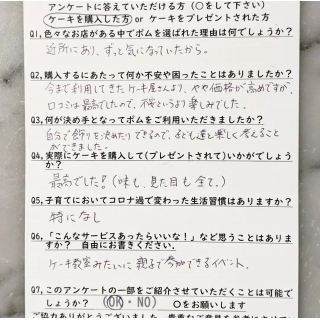 アンケートに答えていただける方（〇をして下さい）
ケーキを購入した方 or ケーキをプレゼントされた方
Q1,色々なお店がある中でボムを選ばれた理由は何でしょうか？
近所にあり、ずっと気になっていたから。
Q2,購入するにあたって何か不安や困ったことはありましたか？
今まで利用してきたケーキ屋さんより、やや価格が高めですが、
口コミは最高でしたので、不安というより楽しみでした。
Q3,何が決め手となってボムをご利用いただきましたか？
自分で飾りを決めたりできるので、子ども達と楽しく考えること
ができました。
Q4,実際にケーキを購入して(プレゼントされて)いかがでしょう
か？
最高でした！（味も、見た目も全て。）
Q5,子育てにおいてコロナ過で変わった生活習慣はありますか？
特になし
Q6,「こんなサービスあったらいいな！」など思うことはありま
すか？ 自由にお書きください。
ケーキ教室みたいに親子で参加できるイベント。
Q7,このアンケートの一部をご紹介させていただくことは可能で
しょうか？ (OK・NO) 〇をお願いします